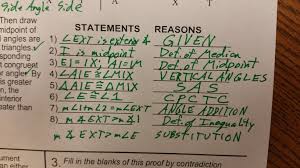 Side Angle Side
A X T
Then draw
midpoint of
l angles are
triangles.
sponding
t congruent
or angle. By
is greater
en, the
interior
eater than
STATEMENTS REASONS
1) ∠EXT is exterior ∡ GIVEN
2) I is midpoint Def. of Median
3) EI = IX, AI = IM Def. of Midpoint
4) ∠AIE ≅ ∠MIX VERTICAL ANGLES
5) △AIE ≅ △MIX SAS
6) ∠E ≅ ∠1 CPCTC
7) m∠1+m∠2=m∠EXT ANGLE ADDITION
8) m∡EXT > m∡1 Def. of Inequality
m∡EXT > m∠E SUBSTITUTION
ument
an either
3. Fill in the blanks of this proof by contradiction